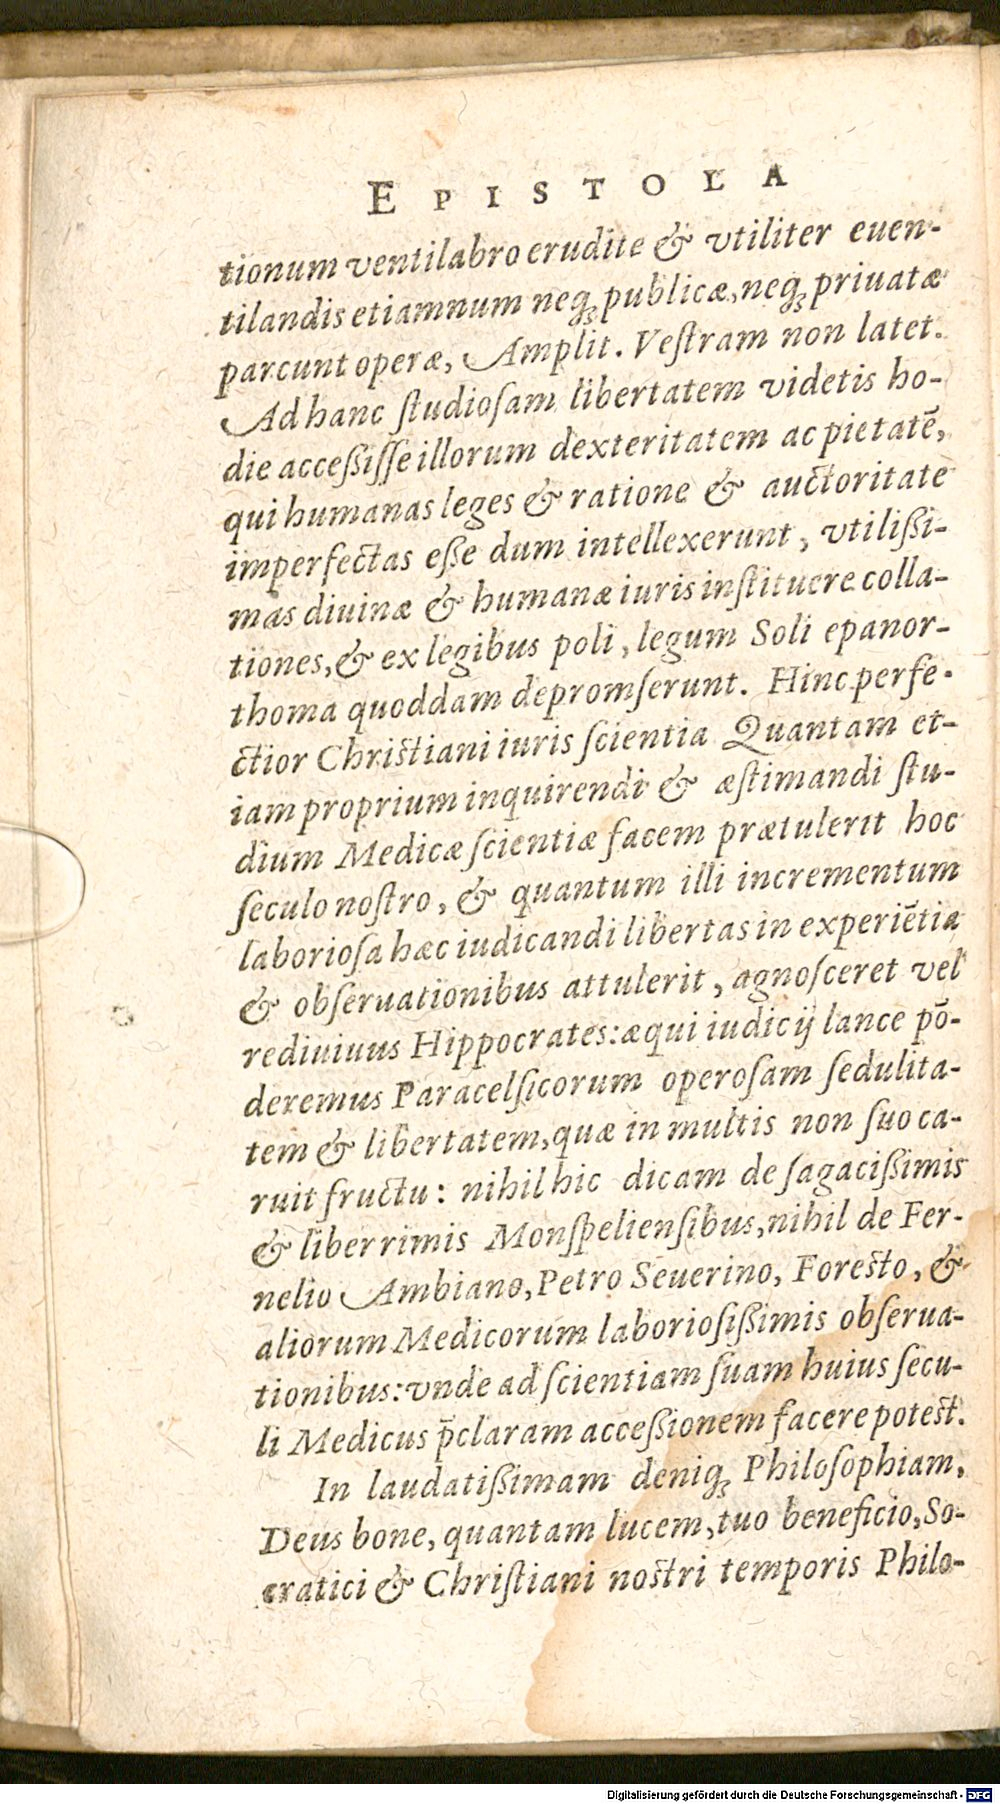 EPISTOLA
tionum ventilabro erudite & vtiliter euen-
tilandis etiamnum neqꝫ publicæ, neqꝫ priuatæ
parcunt operæ, Amplit. Veſtram non latet.
Ad hanc ſtudioſam libertatem videtis ho-
die acceßiſſe illorum dexteritatem ac pietatē,
qui humanas leges & ratione & auctoritate
imperfectas eße dum intellexerunt, vtilißi-
mas diuinæ & humanæ iuris inſtituere colla-
tiones, & ex legibus poli, legum Soli epanor-
thoma quoddam depromſerunt. Hinc perfe-
ctior Chriſtiani iuris ſcientia Quantam et-
iam proprium inquirendi & æſtimandi ſtu-
dium Medicæ ſcientiæ facem prætulerit hoc
ſeculo noſtro, & quantum illi incrementum
laborioſa hæc iudicandi libertas in experiētia
& obſeruationibus attulerit, agnoſceret vel
rediuiuus Hippocrates: æqui iudicij lance pō-
deremus Paracelſicorum operoſam ſedulita-
tem & libertatem, quæ in multis non ſuo ca-
ruit fructu: nihil hic dicam de ſagacißimis
& liberrimis Monſpelienſibus, nihil de Fer-
nelio Ambiano, Petro Seuerino, Foreſto, &
aliorum Medicorum laborioſißimis obſerua-
tionibus: vnde ad ſcientiam ſuam huius ſecu-
li Medicus p̄claram acceßionem facere poteſt.
In laudatißimam deniqꝫ Philoſophiam,
Deus bone, quantam lucem, tuo beneficio, So-
cratici & Chriſtiani noſtri temporis Philo-
Digitalisierung gefördert durch die Deutsche Forschungsgemeinschaft - DFG